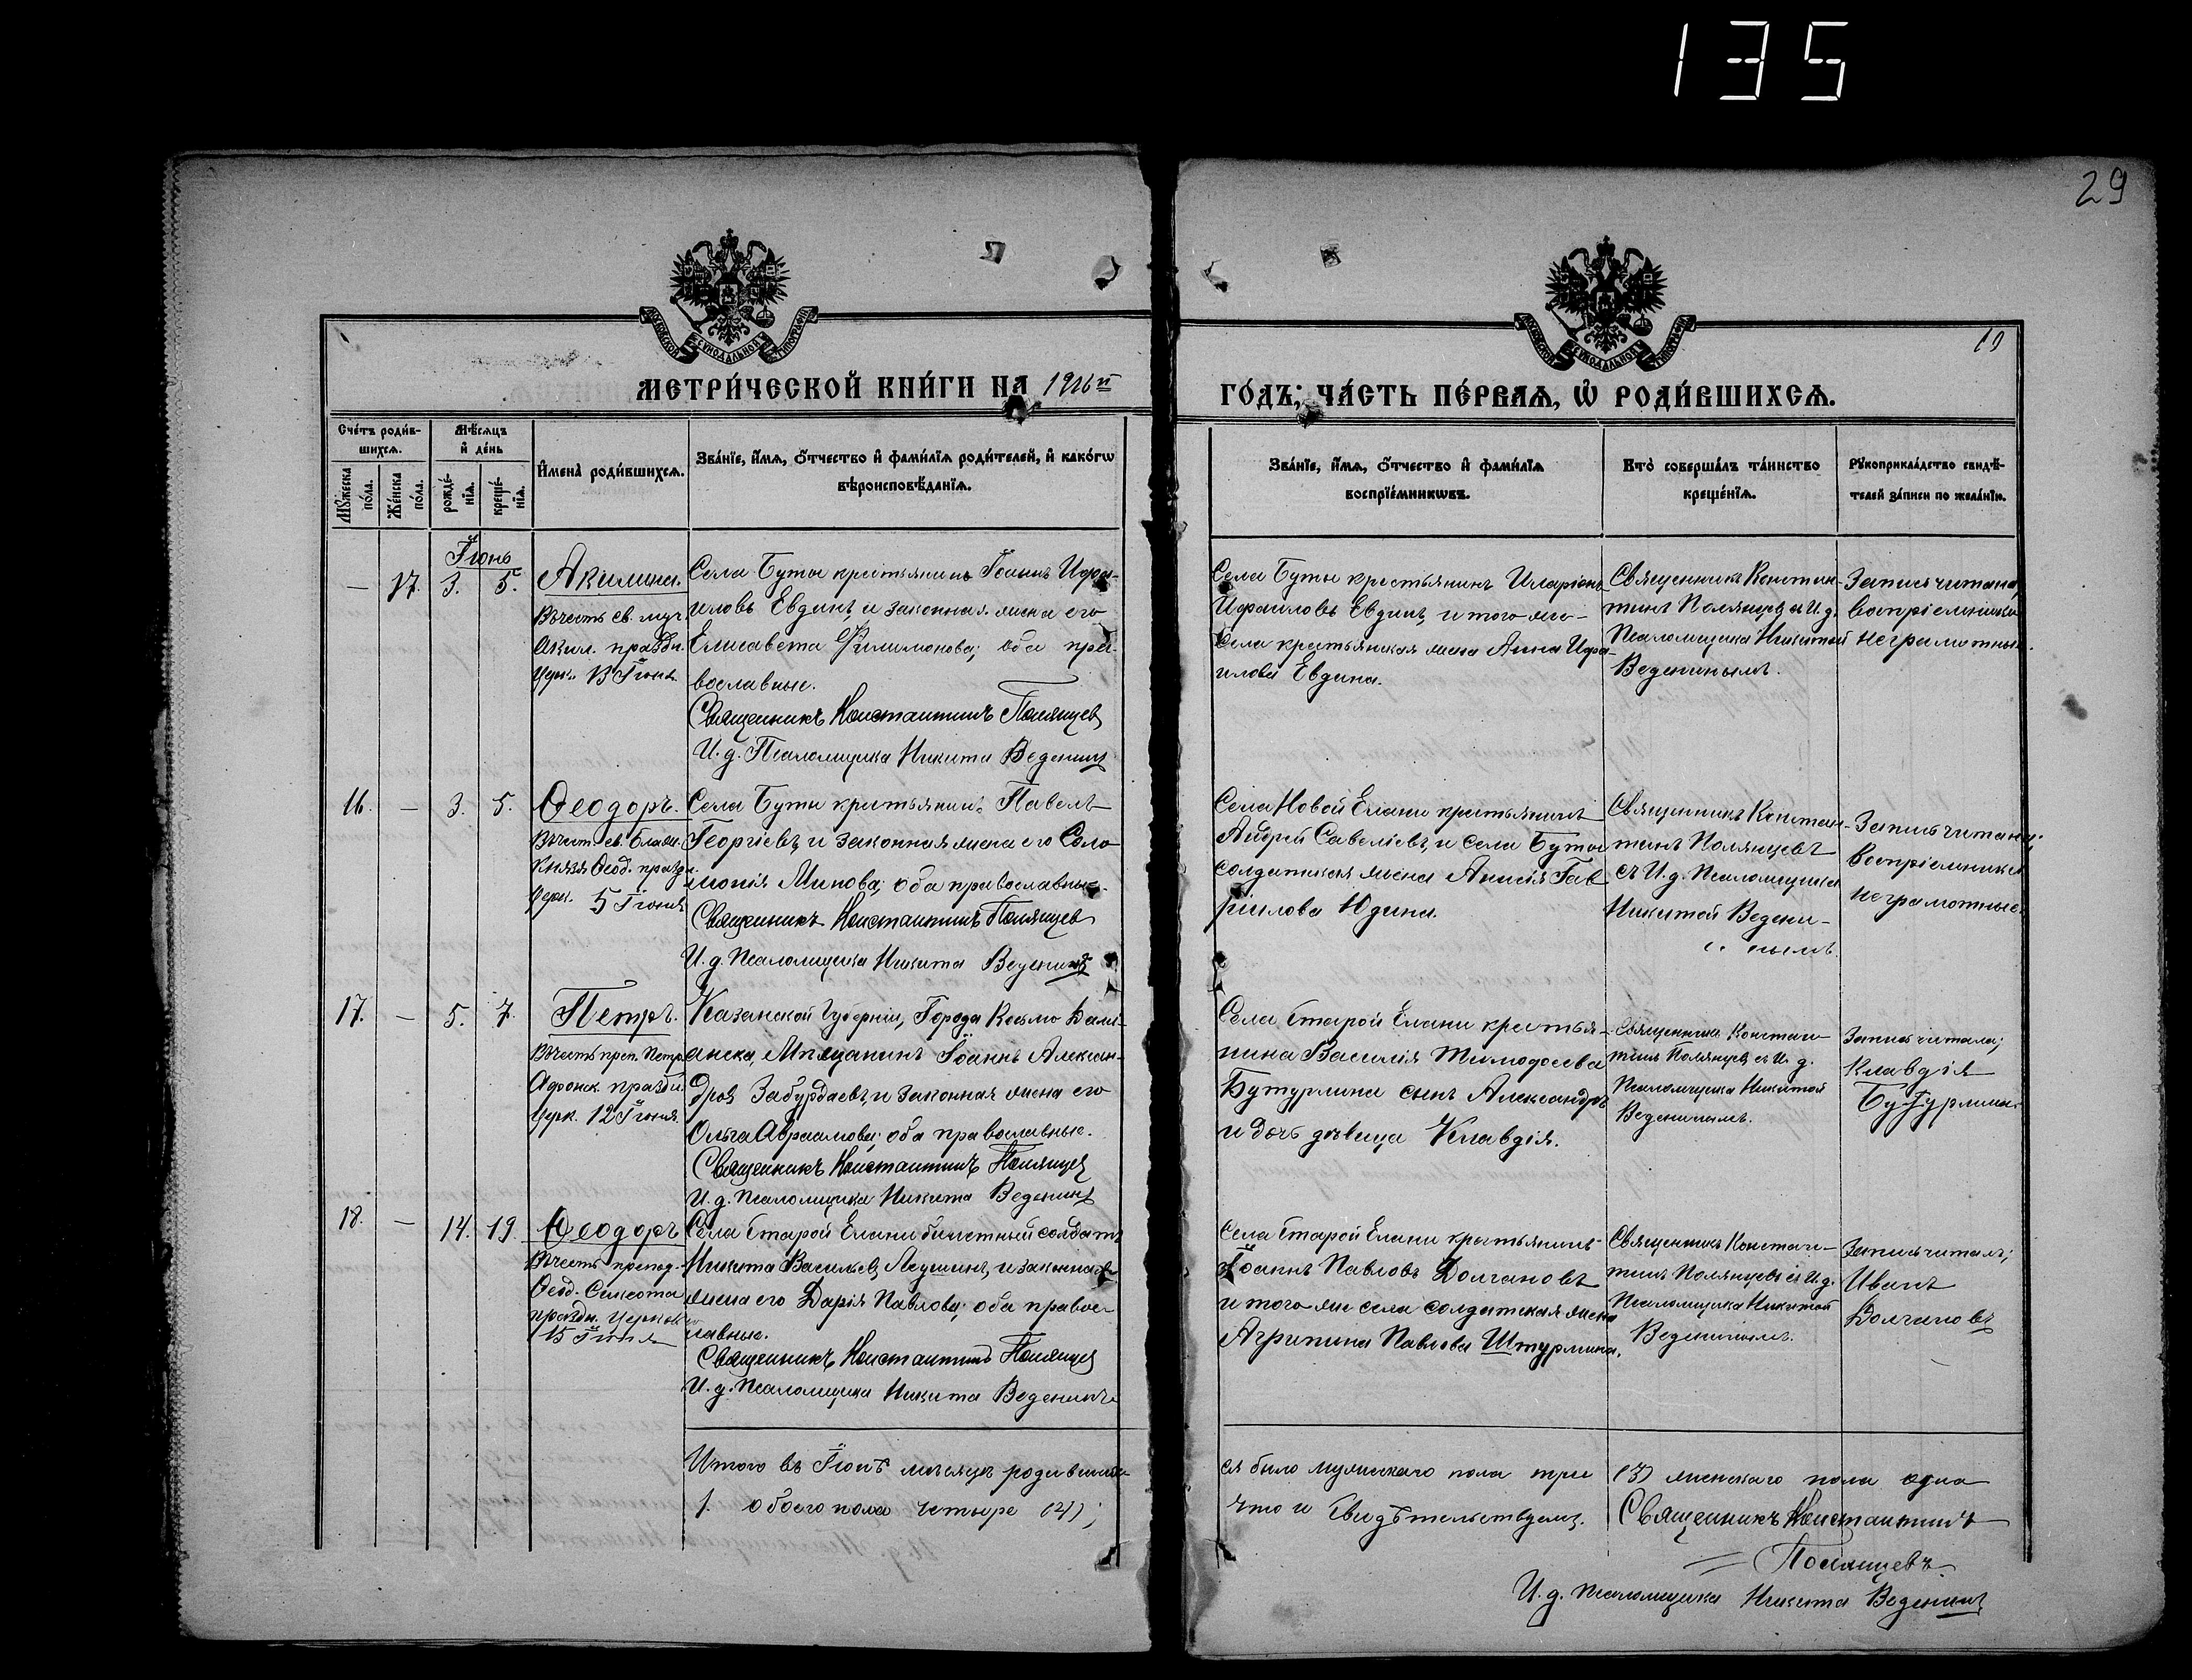 135
29
МОСКОВСКОЙ СѴНОДАЛЬНОЙ ТИПОГРАФІИ
МОСКОВСКОЙ СѴНОДАЛЬНОЙ ТИПОГРАФІИ
МЕТРИ́ЧЕСКОЙ КНИ́ГИ НА 1916й
ГО́ДЪ; ЧА́СТЬ ПЕ́РВАѦ, Ѡ҆ РОДИ́ВШИХСѦ.
Сче́тъ роди́в-
шихсѧ.
Мѣ́сѧцъ
и҆ де́нь
Мꙋ́жеска
по́ла.
Же́нска
по́ла.
рожде́-
нїѧ.
креще́-
нїѧ.
И҆мена̀ роди́вшихсѧ.
Зва́нїе, и҆́мѧ, ѻ҆́тчество и҆ фами́лїѧ роди́телей, и҆ како́гѡ
вѣроисповѣ́данїѧ.
Зва́нїе, и҆́мѧ, ѻ҆́тчество и҆ фами́лїѧ
воспрїе́мникѡвъ.
Кто̀ соверша́лъ та́инство
креще́нїѧ.
Рꙋкоприкла́дство свидѣ́-
телей за́писи по жела́нїю.
Іюнь
— 17. 3. 5.
Акилина.
Въ честь св. муч.
Акил. праздн.
Церк. 13 Іюня
Села Буты крестьянинъ Іоаннъ Изра-
иловъ Евдинъ, и законная жена его
Елисавета Филимонова; оба пра-
вославные.
Священникъ Константинъ Полянцев
И. д. Псаломщика Никита Веденинъ
Села Буты крестьянинъ Иларіонъ
Израиловъ Евдинъ, и того же
Села крестьянская жена Анна Изра-
илова Евдина.
Священникъ Констан-
тинъ Полянцев съ И. д.
Псаломщика Никитой
Веденинымъ.
Запись читана,
воспріемники
неграмотные.
16. — 3. 5.
Ѳеодоръ.
Въ честь св. Благов.
Князя Ѳеод. праздн.
Церк. 5 Іюня
Села Буты крестьянинъ Павелъ
Георгіевъ, и законная жена его Соло-
монія Минова; оба православные.
Священникъ Константинъ Полянцев
И. д. Псаломщика Никита Веденинъ
Села Новой Елани крестьянинъ
Андрей Савеліевъ, и села Буты
солдатская жена Анисія Гав
ріилова Юдина.
Священникъ Констан-
тинъ Полянцевъ
съ И. д. Псаломщика
Никитой Ведени-
нымъ.
Запись читана;
воспріемники
неграмотные.
17. — 5. 7.
Петръ.
Въ честь преп. Петра
Афонск. праздн.
Церк. 12 Іюня.
Казанской Губерніи, Города Козьмо Дамі-
анска, Мѣщанинъ Іоаннъ Алексан-
дровъ Забурдаевъ, и законная жена его
Ольга Авраамова; оба православные.
Священникъ Константинъ Полянцев
И. д. Псаломщика Никита Веденинъ
Села Старой Елани крестья-
нина Василія Тимофеева
Бутурлина сынъ Александръ
и дочь дѣвица Клавдія.
Священникъ Констан-
тинъ Полянцев съ И. д.
Псаломщика Никитой
Веденинымъ.
Запись читала;
Клавдія
Бутурлина
18. — 14. 19.
Ѳеодоръ
Въ честь препод.
Ѳеод. Сикеота
праздн. Церковію
15 Іюня
Села Старой Елани билетный солдатъ
Никита Васильев , и законная
жена его Дарія Павлова; оба правос-
лавные.
Священникъ Константинъ Полянцев
И. д. Псаломщика Никита Веденинъ
Села Старой Елани крестьянинъ
Іоаннъ Павловъ Долгановъ
и того же села солдатская жена
Агрипина Павлова Штурмина.
Священникъ Констан-
тинъ Полянцевъ съ И. д.
Псаломщика Никитой
Веденинымъ.
Запись читалъ;
Иванъ
Долгановъ
Итого въ Іюнѣ мѣсяцѣ родивших-
ся было мужескаго пола три (3) женскаго пола одна
1. обоего пола четыре (4);
что и свидѣтельствуемъ.
Священникъ Константинъ
Полянцевъ
И. д. псаломщика Никита Веденинъ